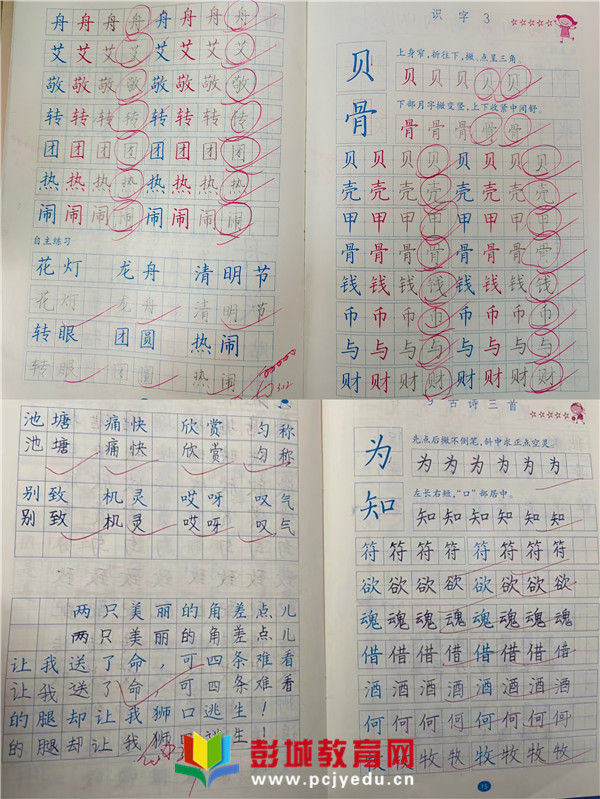 舟舟舟舟舟舟舟舟
艾艾艾艾艾艾艾艾
敬敬敬敬敬敬敬敬
转转转转转转转转
团团团团团团团团
热热热热热热热热
闹闹闹闹闹闹闹闹
自主练习
花灯 龙舟 清明节
花灯 龙舟 清明节
转眼 团圆 热闹
转眼 团圆 热闹
识字3
贝
上身窄,折往下,撇、点呈三角。
贝贝贝贝贝
骨
下部月字撇变竖,上下收紧中间舒。
骨骨骨骨骨
贝贝贝贝贝贝贝贝
壳壳壳壳壳壳壳壳
甲甲甲甲甲甲甲甲
骨骨骨骨骨骨骨骨
钱钱钱钱钱钱钱钱
币币币币币币币币
与与与与与与与与
财财财财财财财财
池塘 痛快 欣赏 匀称
池塘 痛快 欣赏 匀称
别致 机灵 哎呀 叹气
别致 机灵 哎呀 叹气
两只美丽的角差点儿
两只美丽的角差点儿
让我送了命,可四条难看
让我送了命,可四条难看
的腿却让我狮口逃生!
的腿却让我狮口逃生!
9 古诗三首
为
先点后撇不倒笔,斜中求正点空灵。
为为为为为为为
知
左长右短,“口”部居中。
知知知知知知
符符符符符符符符
欲欲欲欲欲欲欲欲
魂魂魂魂魂魂魂魂
借借借借借借借借
酒酒酒酒酒酒酒酒
何何何何何何何何
牧牧牧牧牧牧牧牧
彭城教育网
www.pcjyedu.cn
19